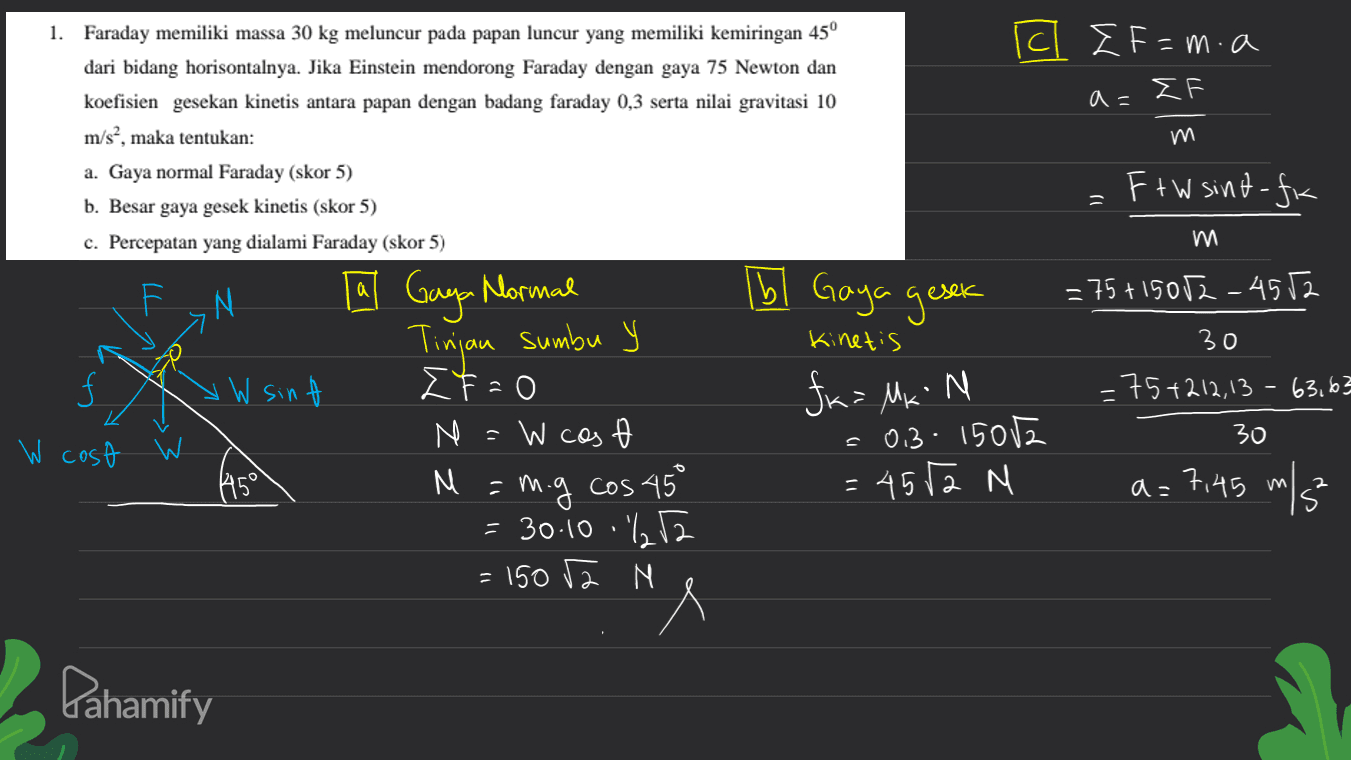 1. Faraday memiliki massa 30 kg meluncur pada papan luncur yang memiliki kemiringan 45⁰
dari bidang horisontalnya. Jika Einstein mendorong Faraday dengan gaya 75 Newton dan
koefisien gesekan kinetis antara papan dengan badang faraday 0,3 serta nilai gravitasi 10
m/s², maka tentukan:
a. Gaya normal Faraday (skor 5)
b. Besar gaya gesek kinetis (skor 5)
c. Percepatan yang dialami Faraday (skor 5)
F N
f
W sin θ
W cos θ W
45°
a Gaya Normal
Tinjau sumbu y
ΣF = 0
N = W cos θ
N = m.g cos 45°
= 30.10 . 1/2 √2
= 150 √2 N
b Gaya gesek
kinetis
fk = μk . N
= 0,3 . 150√2
= 45√2 N
c ΣF = m.a
a = ΣF
m
= F + W sin θ - fk
m
= 75 + 150√2 - 45√2
30
= 75 + 212,13 - 63,63
30
a = 7,45 m/s²
Pahamify